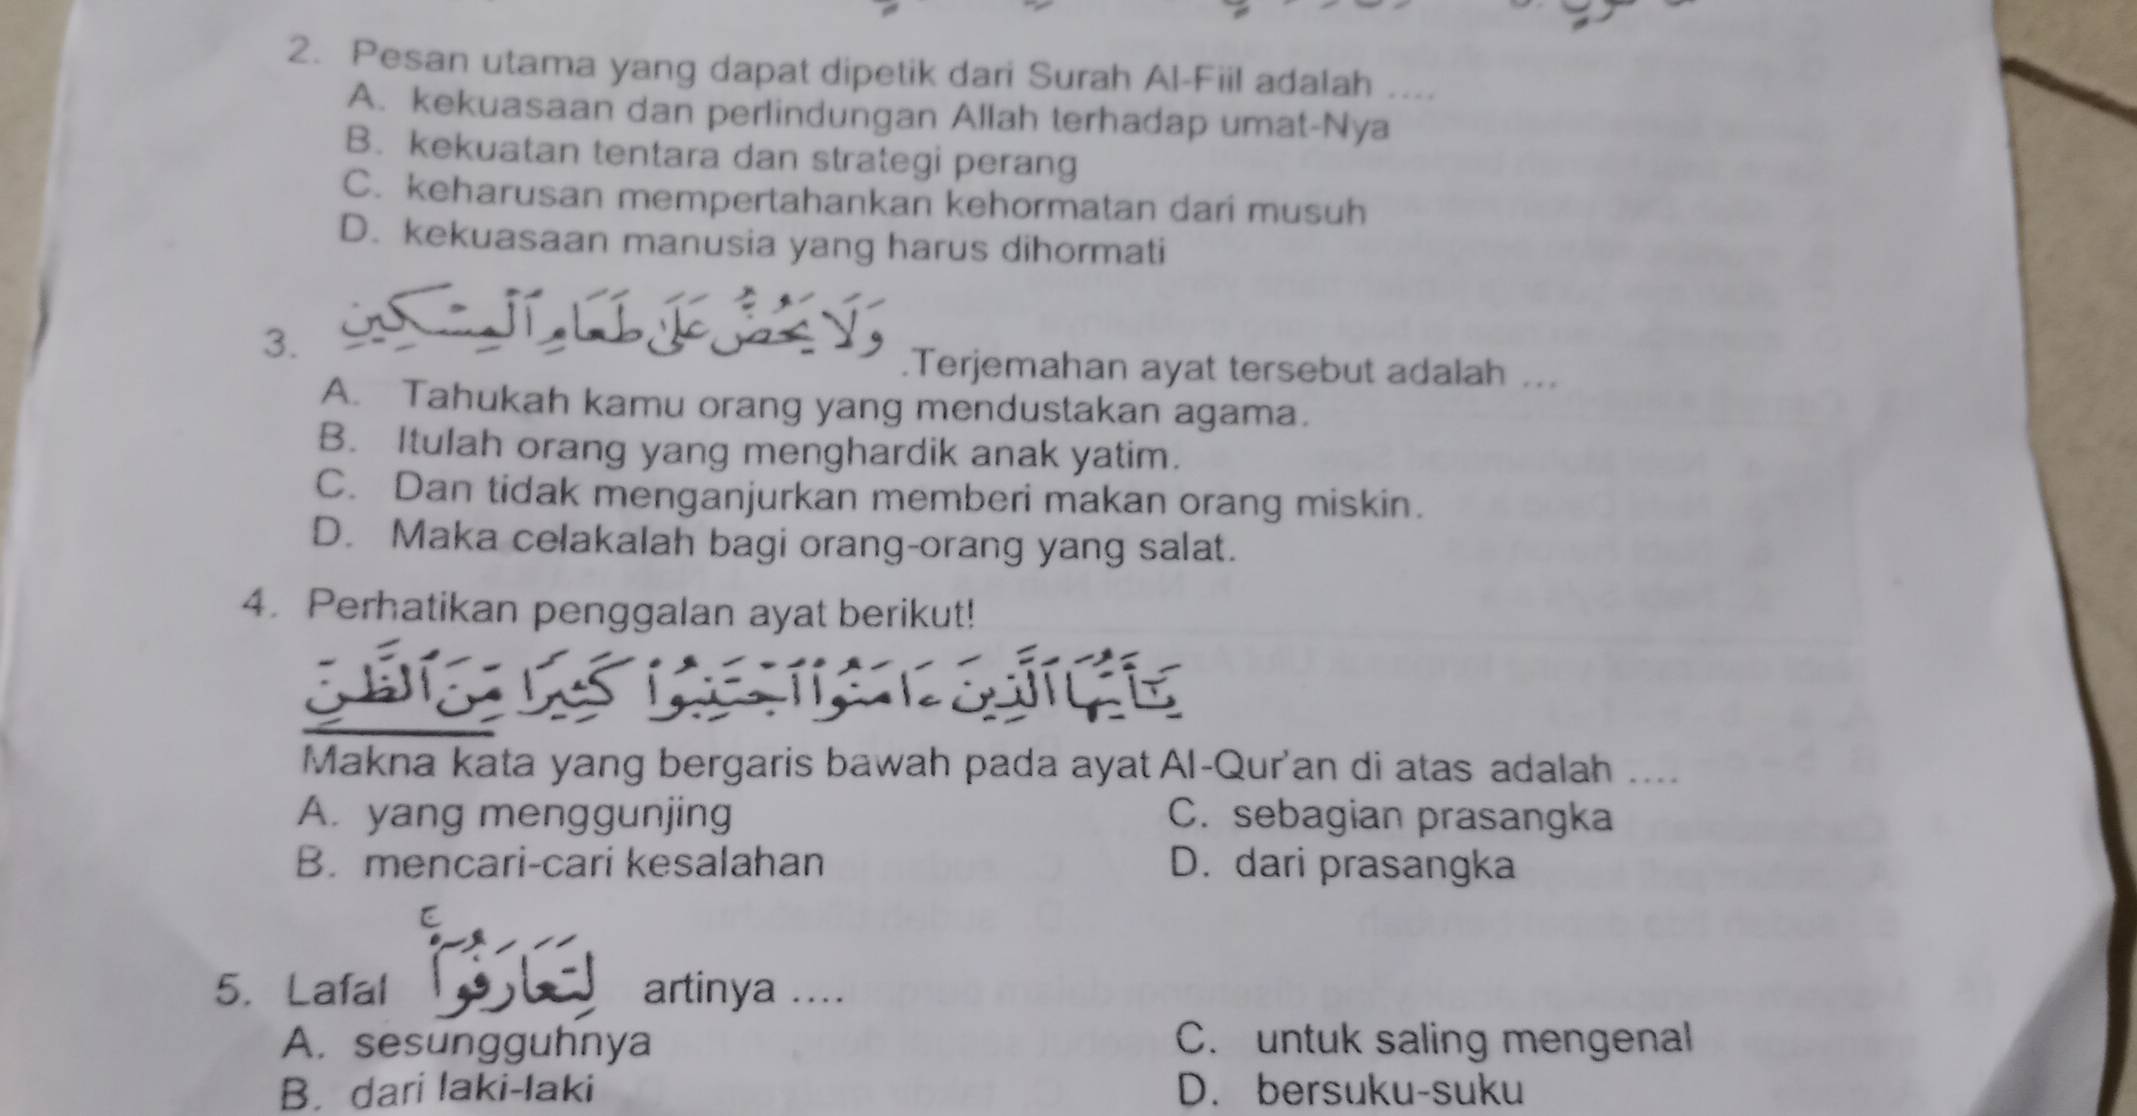 2. Pesan utama yang dapat dipetik dari Surah Al-Fiil adalah ....
A. kekuasaan dan perlindungan Allah terhadap umat-Nya
B. kekuatan tentara dan strategi perang
C. keharusan mempertahankan kehormatan dari musuh
D. kekuasaan manusia yang harus dihormati
3. وَلَا يَحُضُّ عَلَىٰ طَعَامِ ٱلْمِسْكِينِ .Terjemahan ayat tersebut adalah ...
A. Tahukah kamu orang yang mendustakan agama.
B. Itulah orang yang menghardik anak yatim.
C. Dan tidak menganjurkan memberi makan orang miskin.
D. Maka celakalah bagi orang-orang yang salat.
4. Perhatikan penggalan ayat berikut!
يَٰٓأَيُّهَا ٱلَّذِينَ ءَامَنُوا۟ ٱجْتَنِبُوا۟ كَثِيرًا مِّنَ ٱلظَّنِّ
Makna kata yang bergaris bawah pada ayat Al-Qur'an di atas adalah ....
A. yang menggunjing
C. sebagian prasangka
B. mencari-cari kesalahan
D. dari prasangka
5. Lafal لِتَعَارَفُوٓا۟ ۚ artinya ....
A. sesungguhnya
C. untuk saling mengenal
B. dari laki-laki
D. bersuku-suku